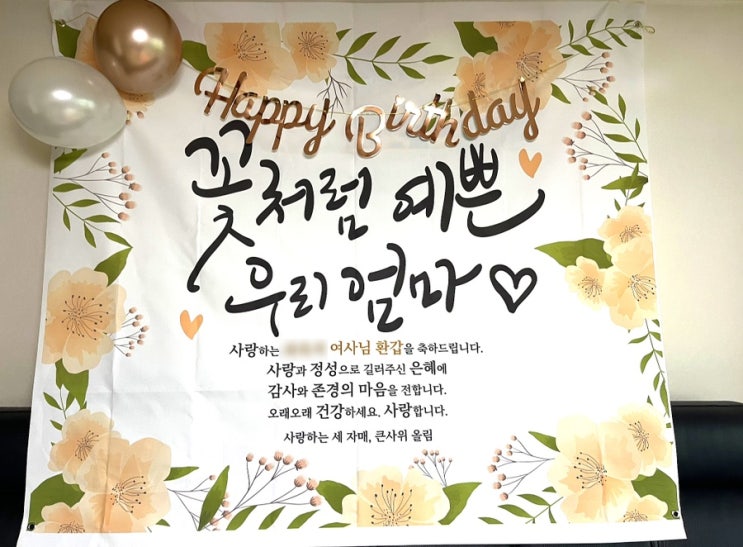 Happy Birthday
꽃처럼 예쁜
우리 엄마
사랑하는 여사님 환갑을 축하드립니다.
사랑과 정성으로 길러주신 은혜에
감사와 존경의 마음을 전합니다.
오래오래 건강하세요. 사랑합니다.
사랑하는 세 자매, 큰사위 올림